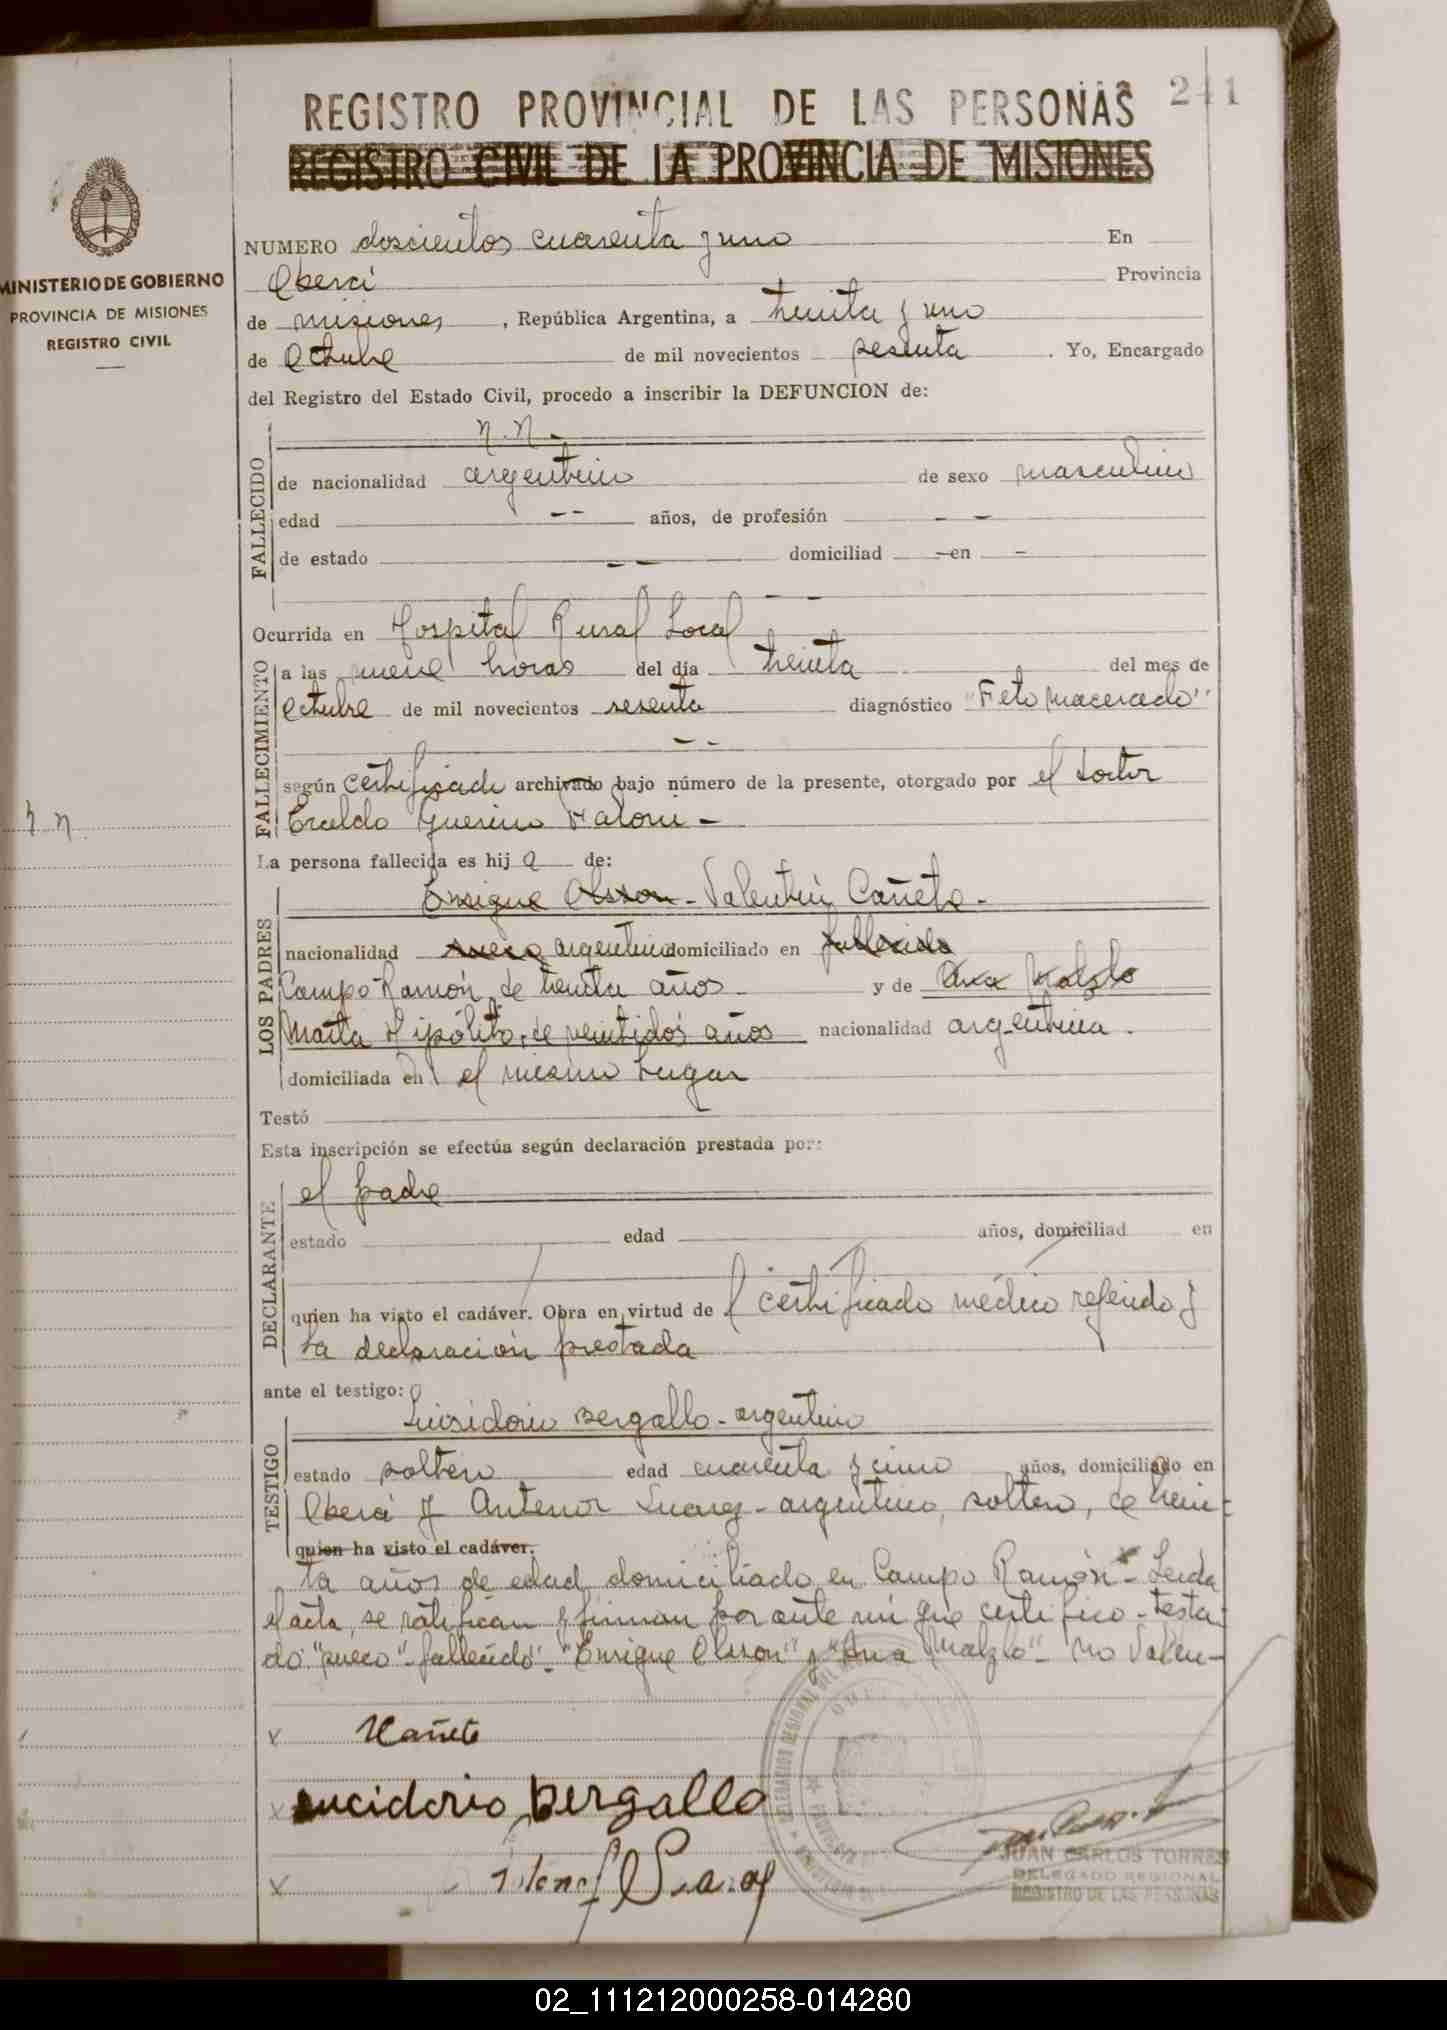 241
REGISTRO PROVINCIAL DE LAS PERSONAS
REGISTRO CIVIL DE LA PROVINCIA DE MISIONES
MINISTERIO DE GOBIERNO
PROVINCIA DE MISIONES
REGISTRO CIVIL
NUMERO doscientos cuarenta y uno En
Oberá Provincia
de misiones, República Argentina, a treinta y uno
de Octubre de mil novecientos sesenta. Yo, Encargado
del Registro del Estado Civil, procedo a inscribir la DEFUNCION de:
FALLECIDO
N.N.-
de nacionalidad argentino de sexo masculino
edad -- años, de profesión - -
de estado -- domiciliad - en -
- -
Ocurrida en Hospital Rural Local
FALLECIMIENTO
a las nueve horas del día treinta del mes de
octubre de mil novecientos sesenta diagnóstico "Feto macerado"
- -
según certificado archivado bajo número de la presente, otorgado por el doctor
Eraldo Guerino -
N N
La persona fallecida es hijo de:
LOS PADRES
Enrique Olsson - Valentín Cañete -
nacionalidad sueco argentino domiciliado en fallecido
Campo Ramón, de treinta años - y de Ana Malzlo
Marta Hipólito, de veintidós años nacionalidad argentina.
domiciliada en el mismo lugar
Testó
Esta inscripción se efectúa según declaración prestada por:
DECLARANTE
el padre
estado edad años, domiciliad en
quien ha visto el cadáver. Obra en virtud de l certificado médico referido y
la declaración prestada
ante el testigo:
TESTIGO
Lucidorio Bergallo - argentino
estado soltero edad cuarenta y cinco años, domiciliado en
Oberá y Antenor Suarez - argentino, soltero, de trein-
quien ha visto el cadáver.
ta años de edad domiciliado en Campo Ramón - Leída
el acta, se ratifican y firman por ante mí que certifico - testa-
do: "sueco" - fallecido" - "Enrique Olsson" y "Ana Malzlo" - no Valen -
x Cañete
x Lucidorio Bergallo
x
JUAN CARLOS TORRES
DELEGADO REGIONAL
REGISTRO DE LAS PERSONAS
02_111212000258-014280